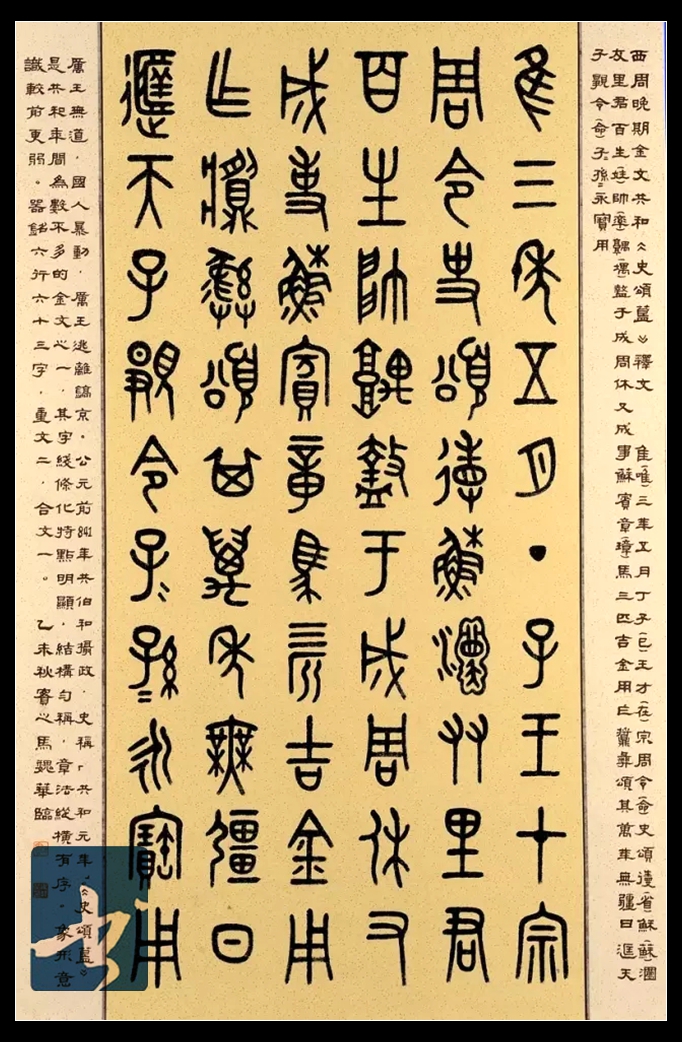 西周晚期金文共和《史頌簋》釋文 隹(唯)三年五月丁子(巳)王才(在)宗周令(命)史頌𢓊(省)穌(蘇)瀾
友里君百生(姓)帥(率)䚄(堣)盩于成周休又成事蘇賓章(璋)馬三匹吉金用乍䵼彝頌其萬年無疆日𨖴天
子覭令(命)子=孫=永寶用
隹三年五月丁子王才宗
周令史頌𢓊穌瀾友里君
百生帥䚄盩于成周休又
成事穌賓章馬三匹吉金用
乍䵼彝頌其萬年無疆日
𨖴天子覭令子=孫=永寶用
厲王無道，國人暴動，厲王逃離鎬京，公元前841年共伯和攝政，史稱「共和元年」，《史頌簋》
是共和年間，為數不多的金文之一，其字綫條化特點明顯，結構勻稱，章法縱橫有序，象形意
識較前更弱。器銘六行六十三字，重文二，合文一。乙未秋賓之馬魏華臨